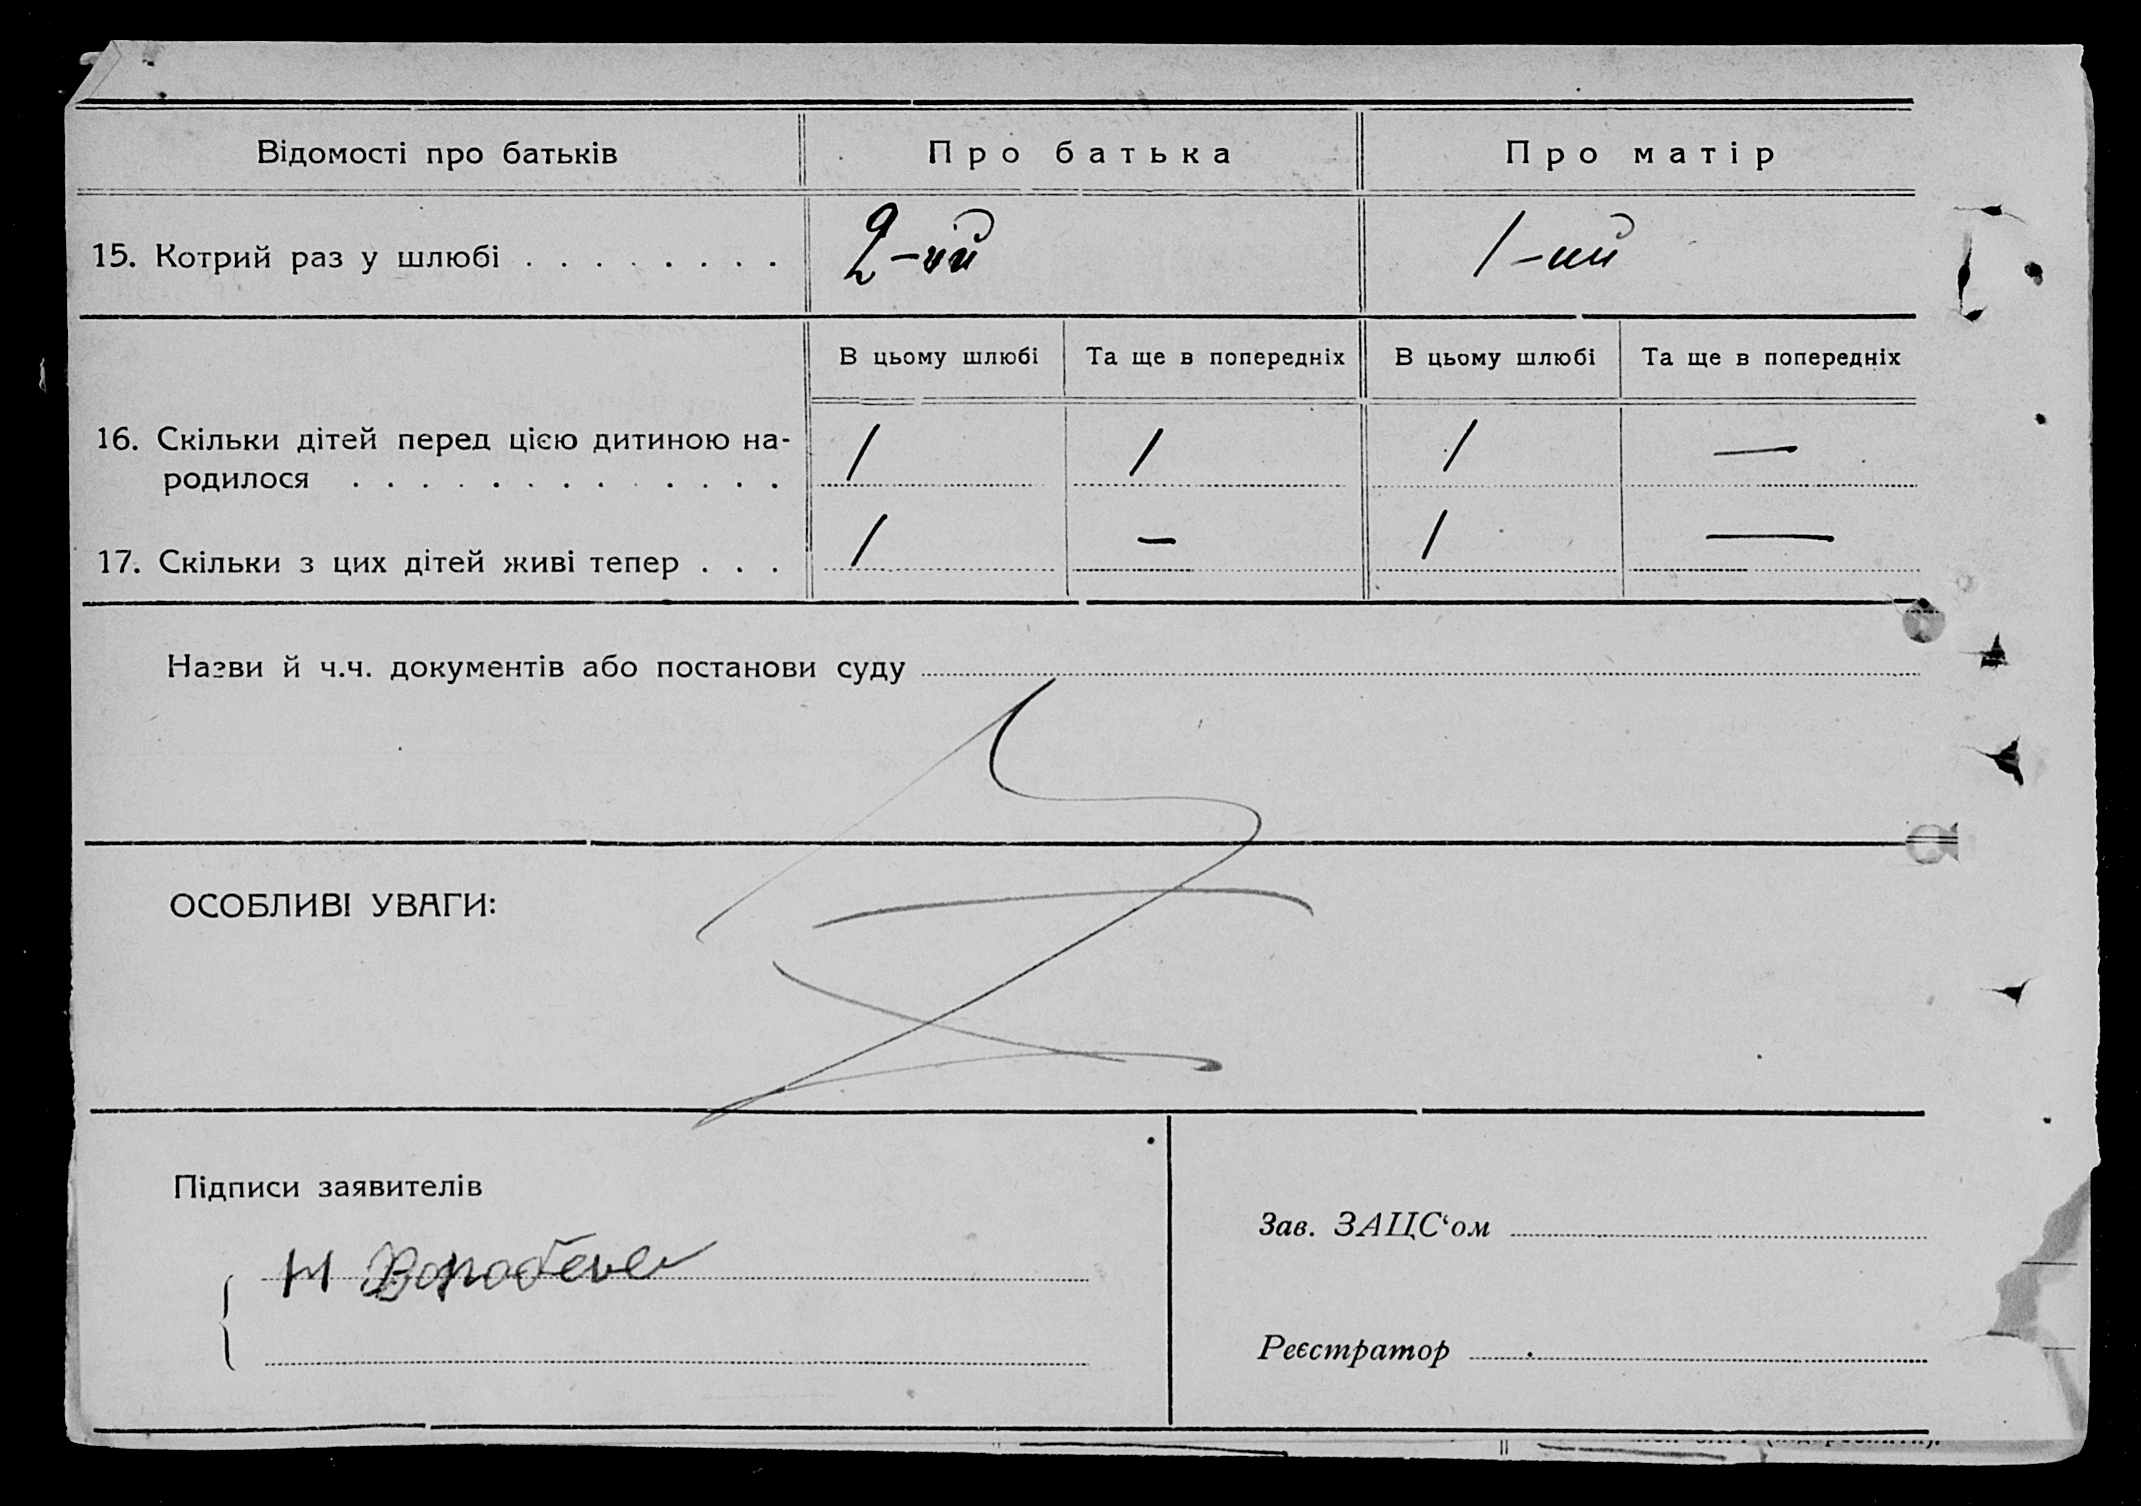 Відомості про батьків Про батька Про матір
15. Котрий раз у шлюбі . . . . . . . . 2-ий 1-ий
В цьому шлюбі Та ще в попередніх В цьому шлюбі Та ще в попередніх
16. Скільки дітей перед цією дитиною на-
родилося . . . . . . . . . . . . . 1 1 1 —
17. Скільки з цих дітей живі тепер . . . 1 — 1 —
Назви й ч.ч. документів або постанови суду
ОСОБЛИВІ УВАГИ:
Підписи заявителів
Зав. ЗАЦС‘ом
Реєстратор